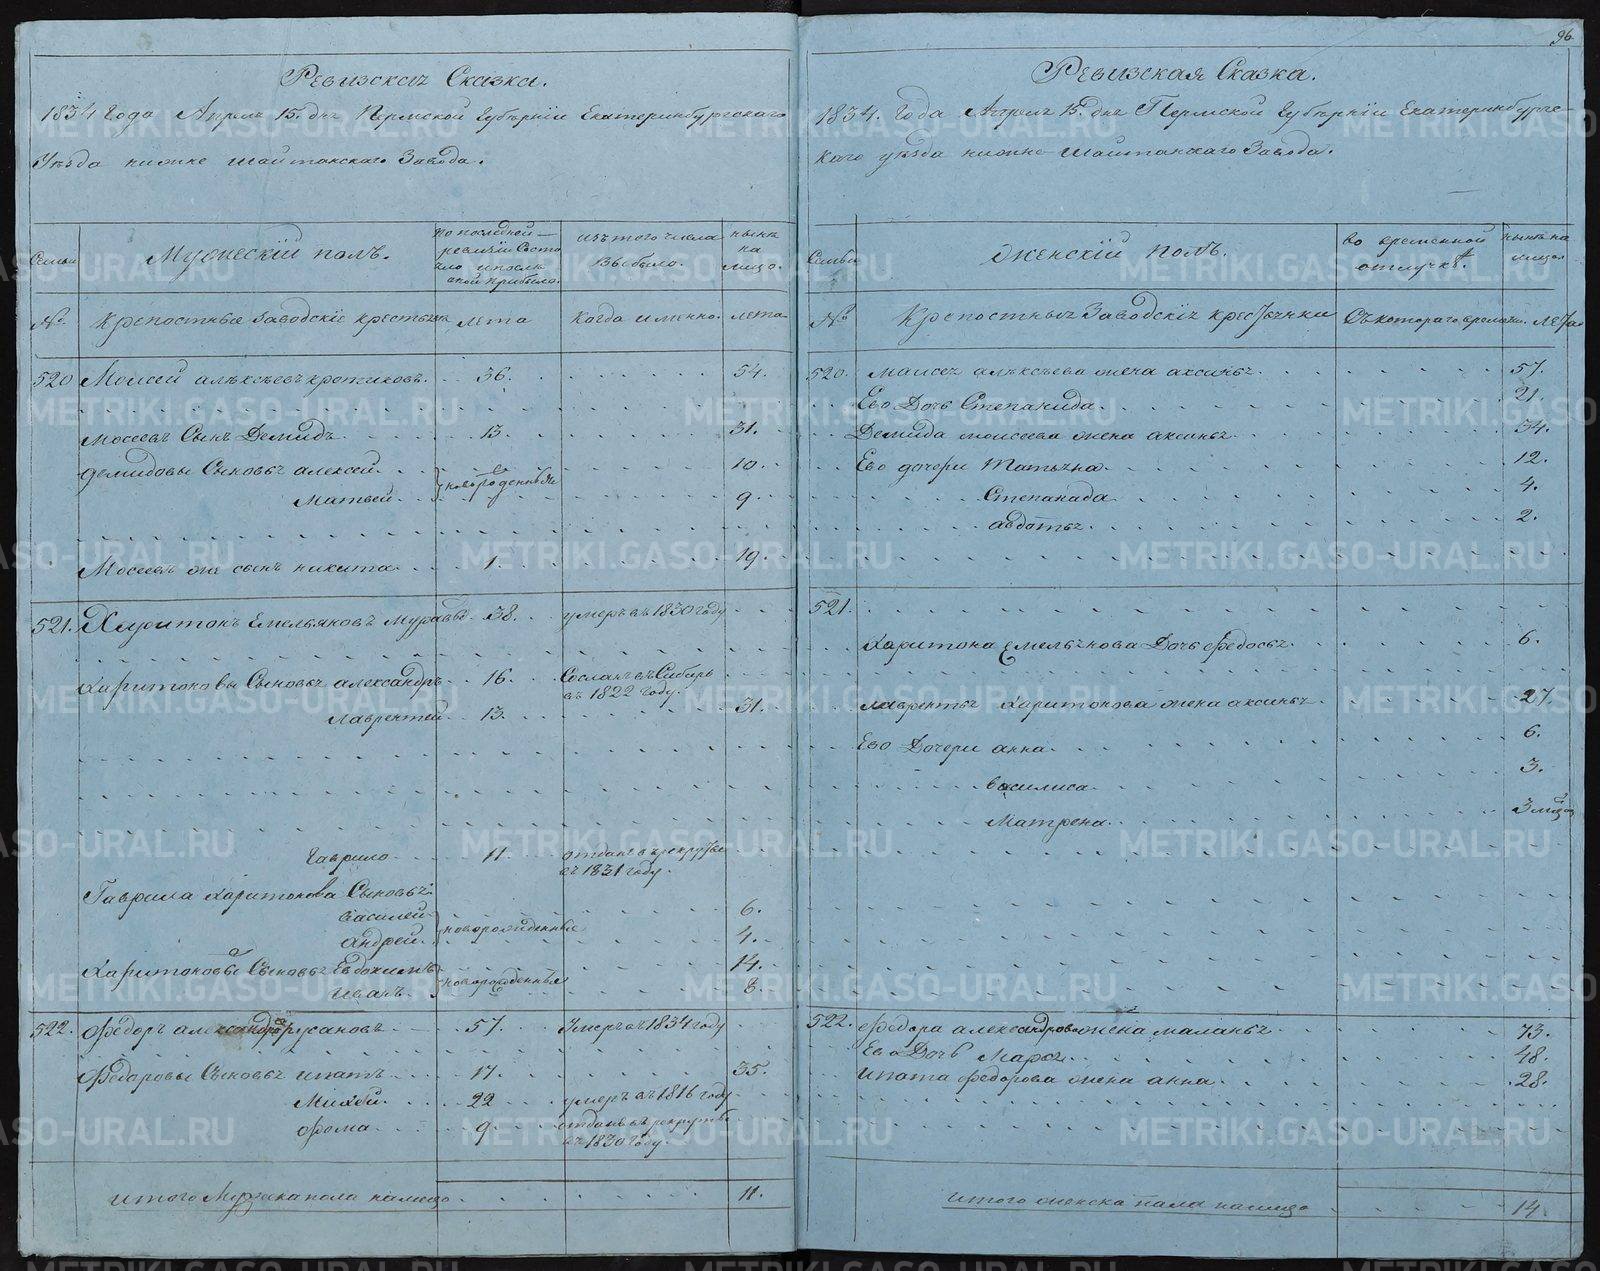 Ревизская Сказка.
1834 Года Апреля 15. дня Пермской Губернiи Екатеринбургскаго
Уѣзда нижне шайтанскаго Завода.
Семьи
Мужескiй полъ.
по последней
ревизiи Состо
яло и после
оной прибыло.
изъ того числа
выбыло.
нынѣ
на
лицо.
№
Крепостные Заводскiе крестьяня
лета
Когда именно.
лета
520 Моисей алѣксѣевъ кротиковъ. 36. 54.
Мосеевъ Сынъ Демидъ 13. 31.
Демидовы Сыновья алексей. новорожденные 10.
Матвей. 9.
Мосеевъ же сынъ никита 1. 19.
521. Харитонъ Емельяновъ 38. умеръ въ 1830 году
Харитоновы Сыновья александръ 16. Сосланъ въ Сибирь
въ 1822 году.
лаврентей 13. 31.
Гаврило 11. отданъ в рекруты
въ 1831 году.
Гаврила харитонова Сыновья
василей 6.
андрей. новорожденные 4.
Харитоновы Сыновья Евдокимъ 14.
иванъ. новорожденные 8.
522. Федоръ александровъ русановъ 57. Умеръ въ 1834 году
Федоровы Сыновья ипатъ 17. 35.
Михей. 22 умеръ въ 1816 году
фома 9. отданъ въ рекруты
въ 1830 году.
итого Мужеска пола налицо 11.
96
Ревизская Сказка.
1834. Года Апреля 15. дня Пермской Губернiи Екатеринбургс-
каго уѣзда нижне шайтанскаго Завода.
Семьи
женскiй полъ.
во временной
отлучкѣ.
нынѣ на
лицо
№
Крепостныя Заводскiя крестьянки
Съ котораго времени.
лета
520. Моисея алѣксѣева жена аксинья 57.
Ево Дочь Степанида 21.
Демида моисеева жена аксинья 34.
Ево дочери Татьяна 12.
Степанида 4.
авдотья 2.
521.
Харитона Емельянова Дочь федосья 6.
лаврентья Харитонова жена аксинья 27.
Ево Дочери анна 6.
василиса 3.
Матрена 3 мѣсяц
522. федора александрова жена маланья 73.
Ево Дочь Марья 48.
ипата федорова жена анна 28.
итого женска пола налицо 14.
METRIKI.GASO-URAL.RU